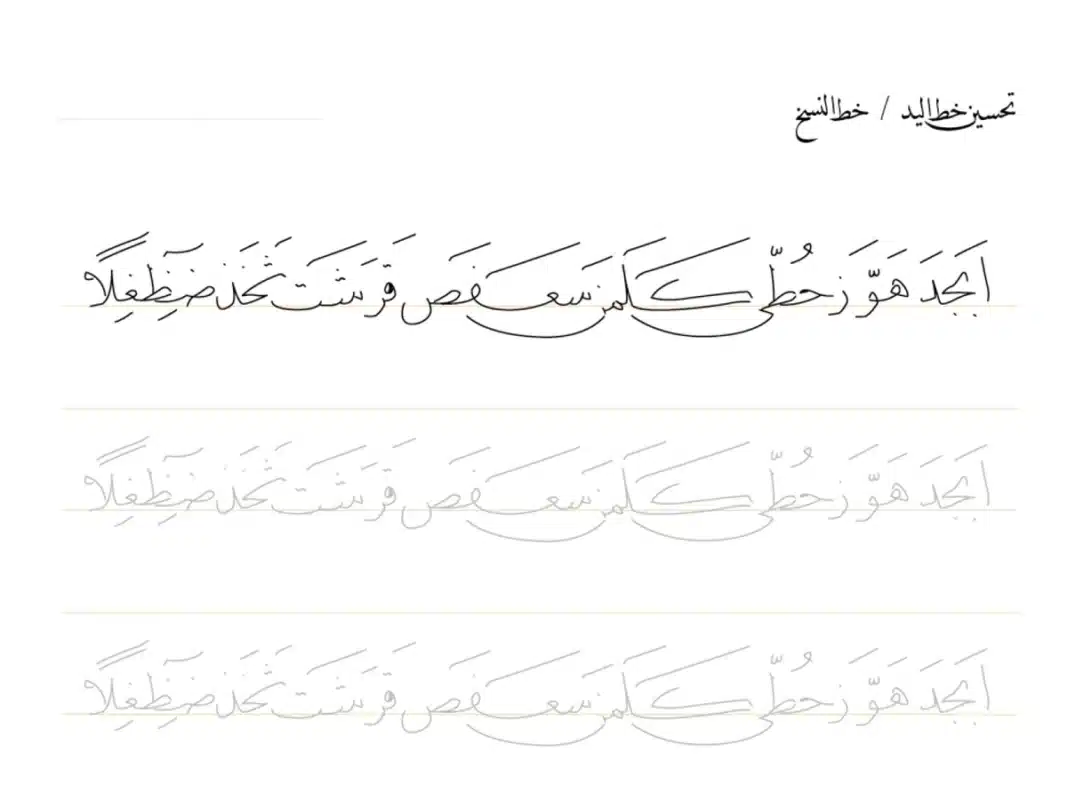 تحسين خط اليد / خط النسخ
اَبَجَدَ هَوَّزَ حُطِّي كَلَمَن سَعَفَصَ قَرَشَتَ ثَخَذٌ ضَظِغِلًا
اَبَجَدَ هَوَّزَ حُطِّي كَلَمَن سَعَفَصَ قَرَشَتَ ثَخَذٌ ضَظِغِلًا
اَبَجَدَ هَوَّزَ حُطِّي كَلَمَن سَعَفَصَ قَرَشَتَ ثَخَذٌ ضَظِغِلًا